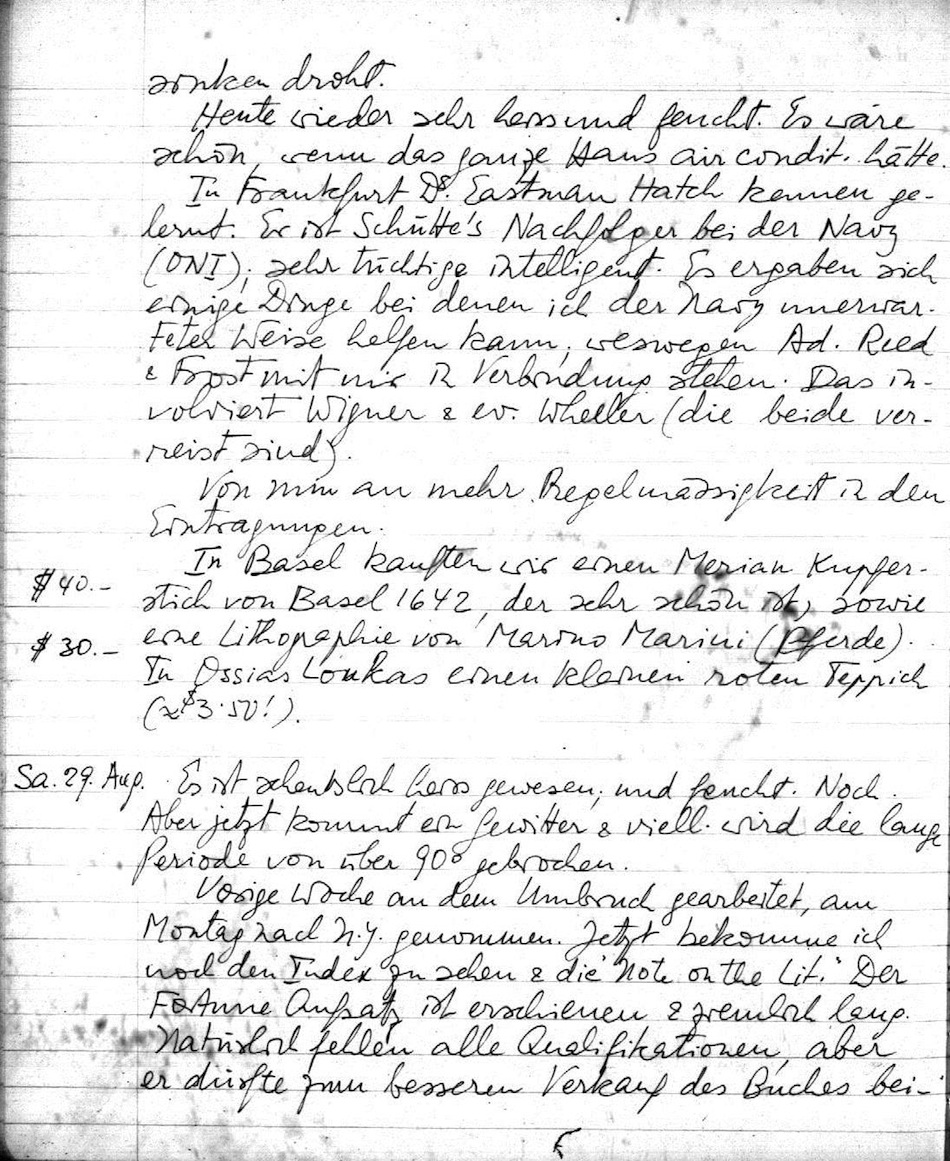 sinken droht.
Heute wieder sehr heiss und feucht. Es wäre
schön, wenn das ganze Haus air condit. hätte.
In Frankfurt Dr. Eastman Hatch kennen ge-
lernt. Er ist Schütte's Nachfolger bei der Navy
(ONI); sehr tüchtig & intelligent. Es ergaben sich
einige Dinge bei denen ich der Navy unerwar-
teter Weise helfen kann; weswegen Ad. Reed
& Frost mit mir in Verbindung stehen. Das in-
volviert Wigner & ev. Wheller (die beide ver-
reist sind).
Von nun an mehr Regelmässigkeit in den
Eintragungen.
In Basel kauften wir einen Merian Kupfer-
$ 40.- stich von Basel 1642, der sehr schön ist, sowie
$ 30.- eine Lithographie von Marino Marini (Pferde).
In Ossias Loukas einen kleinen roten Teppich
(≈$3.50!).
Sa. 29. Aug. Es ist scheusslich heiss gewesen; und feucht. Noch.
Aber jetzt kommt ein Gewitter & viell. wird die lange
Periode von über 90° gebrochen.
Vorige Woche an dem Umbruch gearbeitet, am
Montag nach N.Y. genommen. Jetzt bekomme ich
noch den Index zu sehen & die "Note on the Lit." Der
Fortune Aufsatz ist erschienen & ziemlich lang.
Natürlich fehlen alle Qualifikationen, aber
er dürfte zum besseren Verkauf des Buches bei-